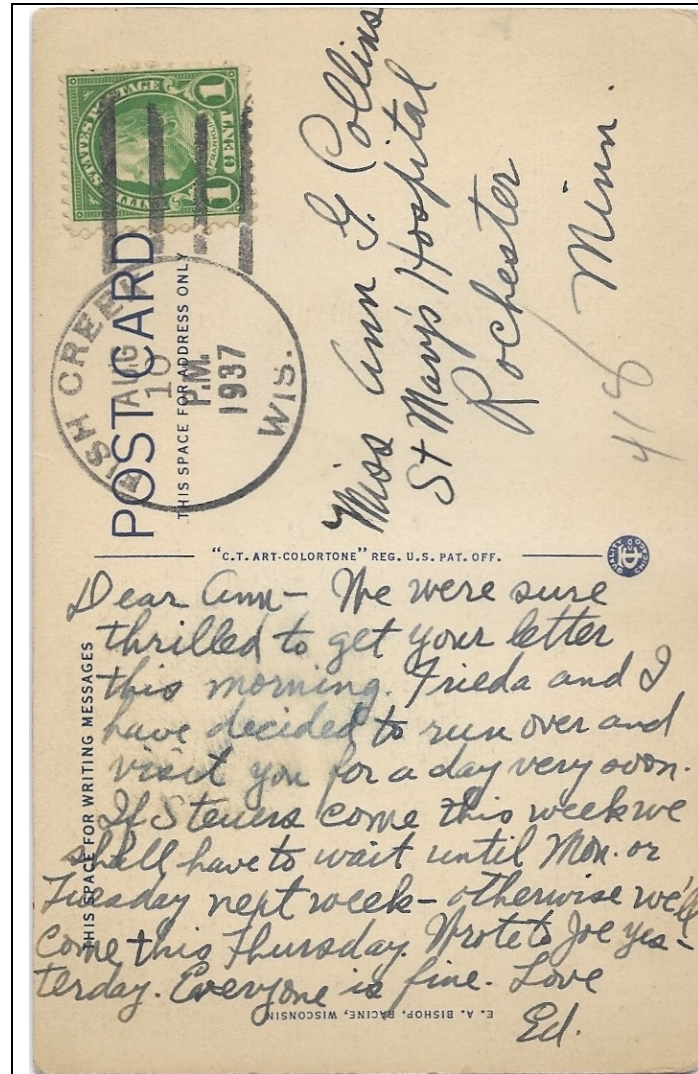 UNITED STATES POSTAGE
FRANKLIN
1 CENT 1
FISH CREEK
AUG
10
P.M.
1937
WIS.
POST CARD
THIS SPACE FOR ADDRESS ONLY
Miss Ann G. Collins
St Mary's Hospital
Rochester
Minn.
418
"C.T. ART-COLORTONE" REG. U.S. PAT. OFF.
THIS SPACE FOR WRITING MESSAGES
Dear Ann— We were sure
thrilled to get your letter
this morning. Frieda and I
have decided to run over and
visit you for a day very soon.
If Steuers come this week we
shall have to wait until Mon. or
Tuesday next week— otherwise we'll
come this Thursday. Wrote to Joe yes-
terday. Everyone is fine. Love
Ed.
E. A. BISHOP, RACINE, WISCONSIN